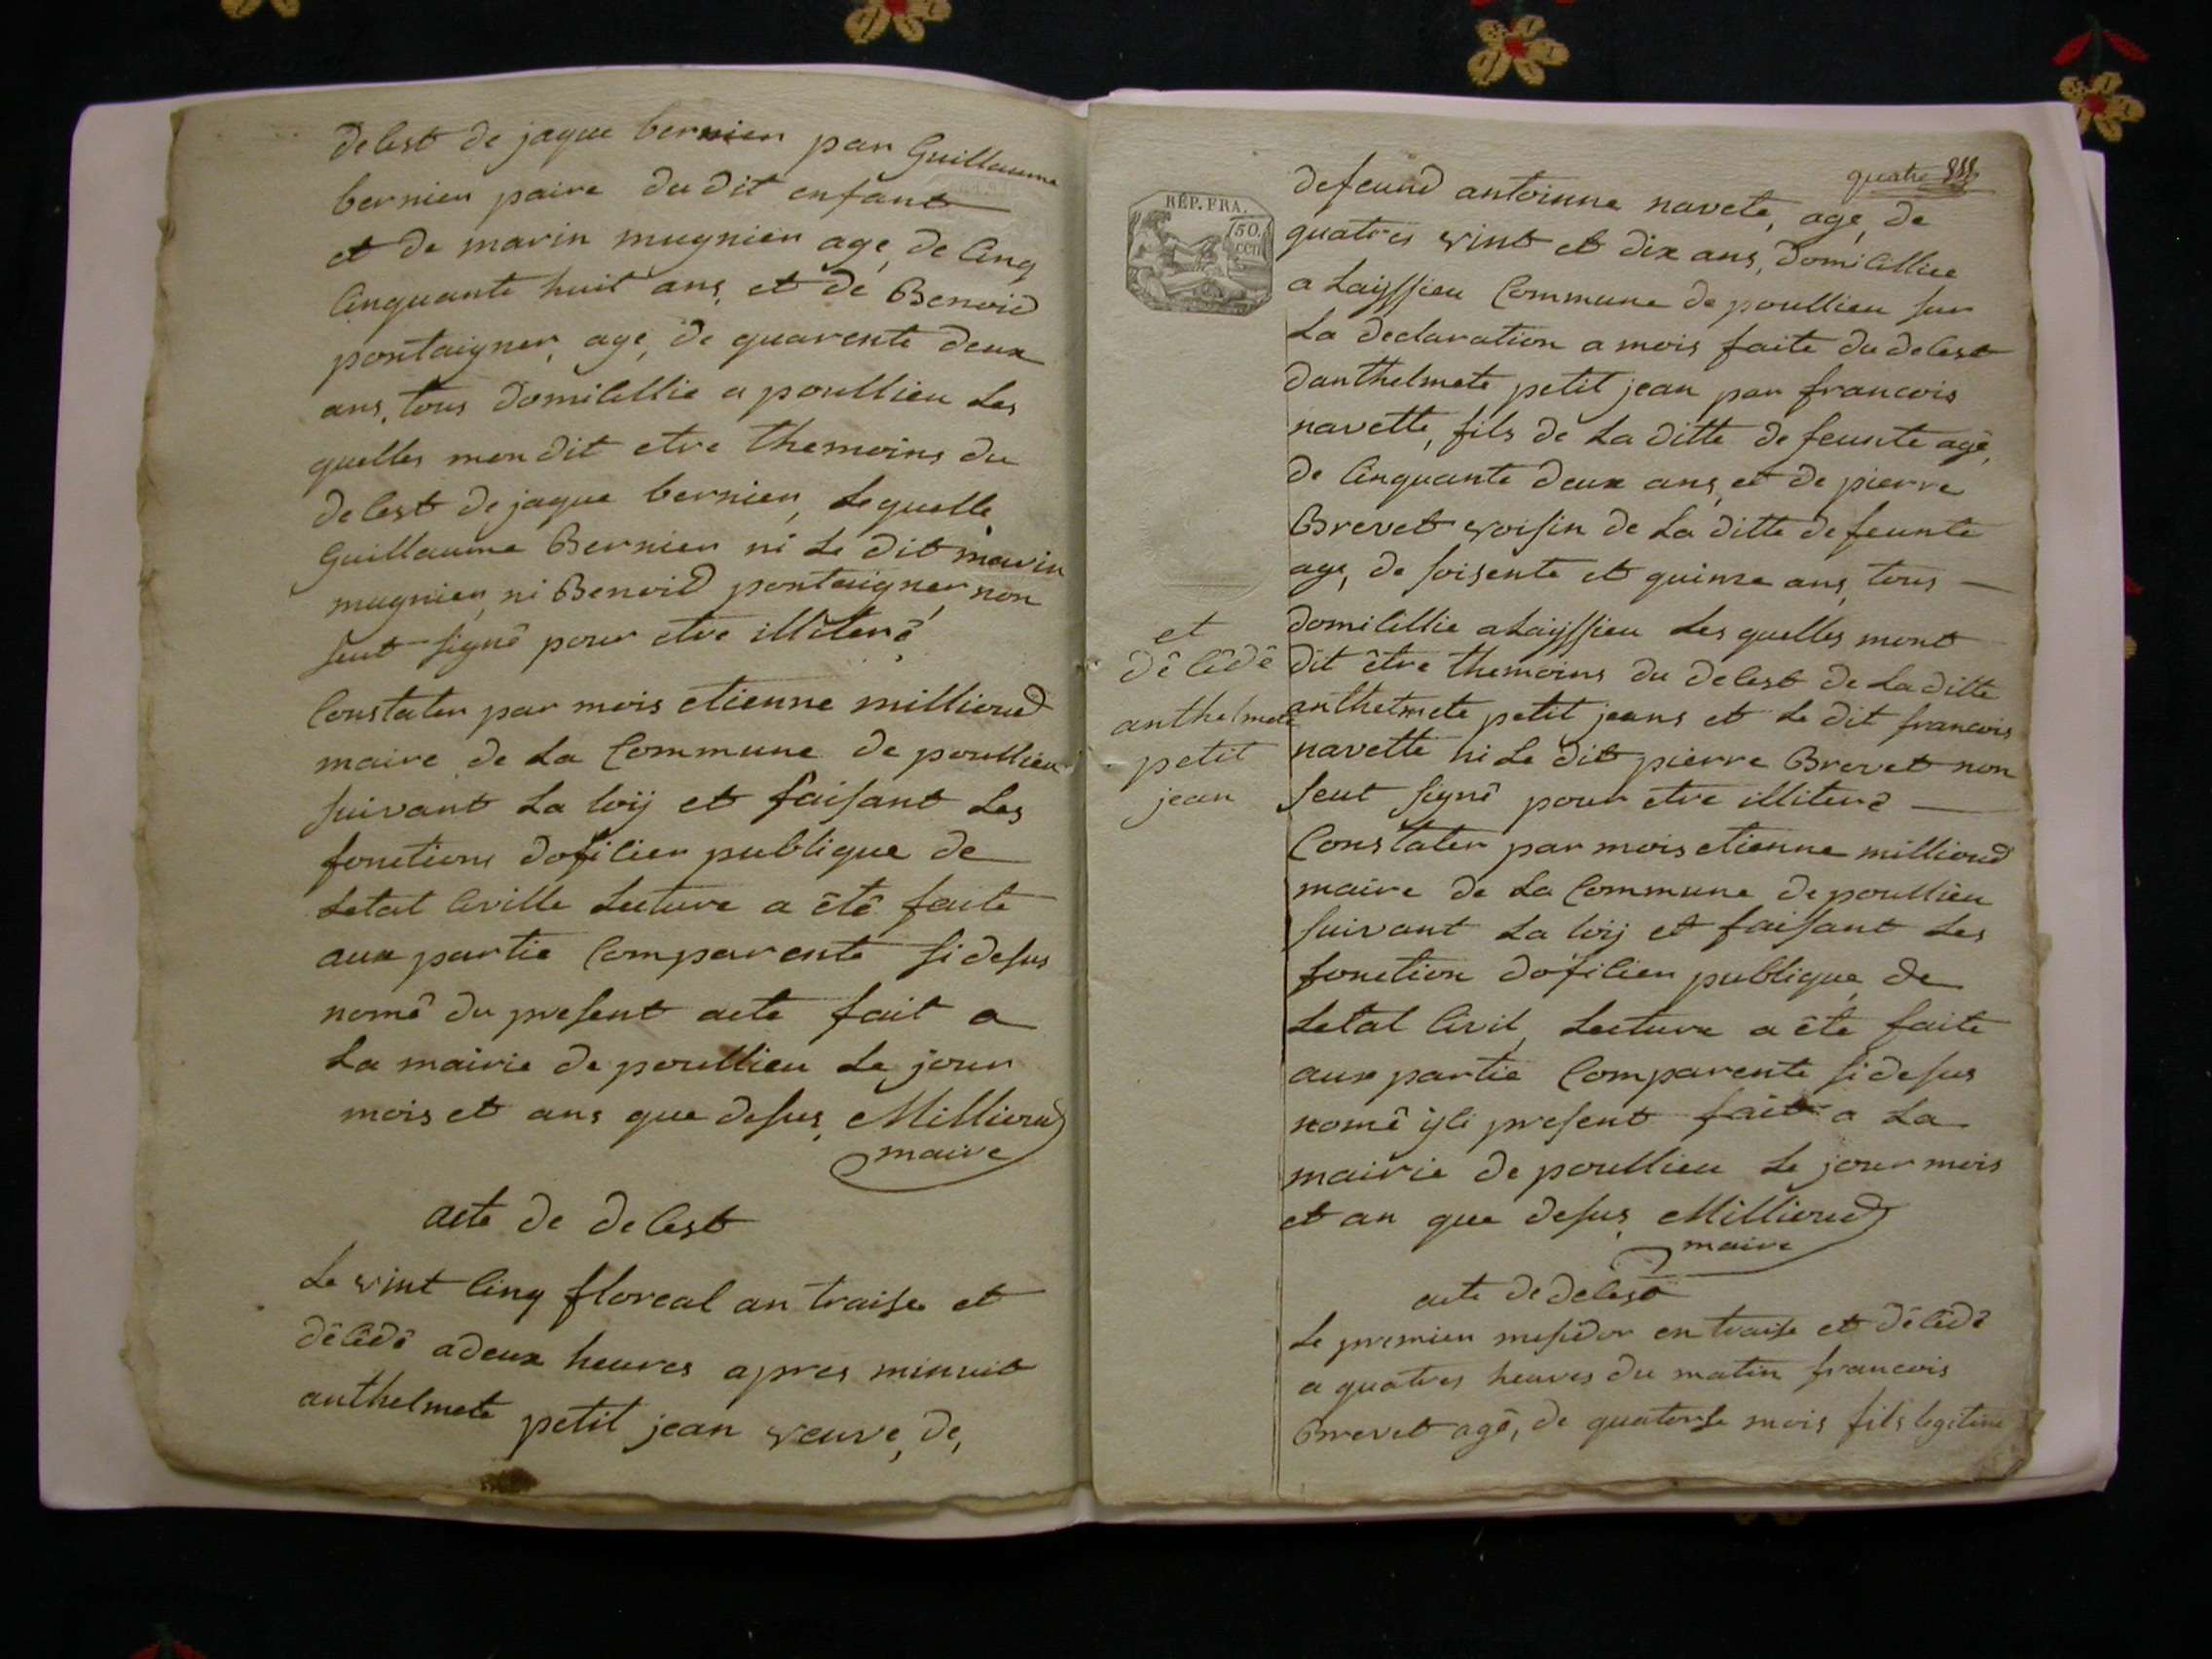 delest de jaque bernier par Guillaume
bernier paire du dit enfant
et de marin mugnier age, de cinq
cinquante huit ans, et de Benoid
pontaigner, age, de quarente deux
ans, tous domicillie a poullieu les
quelles mon dit etre themoins du
delest de jaque bernier, lequelle
Guillaume Bernier ni le dit marin
mugnier, ni Benoid pontaigner non
seut signé pour etre illiteré
Constater par mois etienne millioud
maire de la Commune de poullieu
suivant la loÿ et faisant les
fonctions doficier publique de
letat civille lecture a été faite
aux partie comparente si desus
nomé du present acte fait a
la mairie de poullieu le jour
mois et ans que desus, Millioud
maire
acte de delest
le vint cinq floreal an traise et
décédé a deux heures apres minuit
anthelmete petit jean veuve, de,
quatre
RÉP. FRA.
50.
CEN
defeund antoinne navete, age, de
quatres vint et dix ans, domicilliee
a Laissieu Commune de poullieu sur
la declaration a mois faite du delest
danthelmete petit jean par francois
navette, fils de la ditte defeunte agé,
de cinquante deux ans, et de pierre
Brevet voisin de la ditte defeunte
age, de soisente et quinze ans, tous
domicillie a Laissieu les quelles mont
dit être themoins du delest de la ditte
anthelmete petit jeans et le dit francois
navette ni le dit pierre Brevet non
seut signé pour etre illiteré
Constater par mois etienne millioud
maire de la Commune de poullieu
suivant la loÿ et faisant les
fonction doficier publique, de
letat civil, lecture a été faite
aux partie comparente si desus
nomé ÿci present fait a la
mairie de poullieu le jour mois
et an que desus, Millioud
maire
et
décédé
anthelmete
petit
jean
acte de delest
le premier mesidor en traise et décédé
a quatres heures du matin francois
Brevet agé, de quatorse mois fils legitime